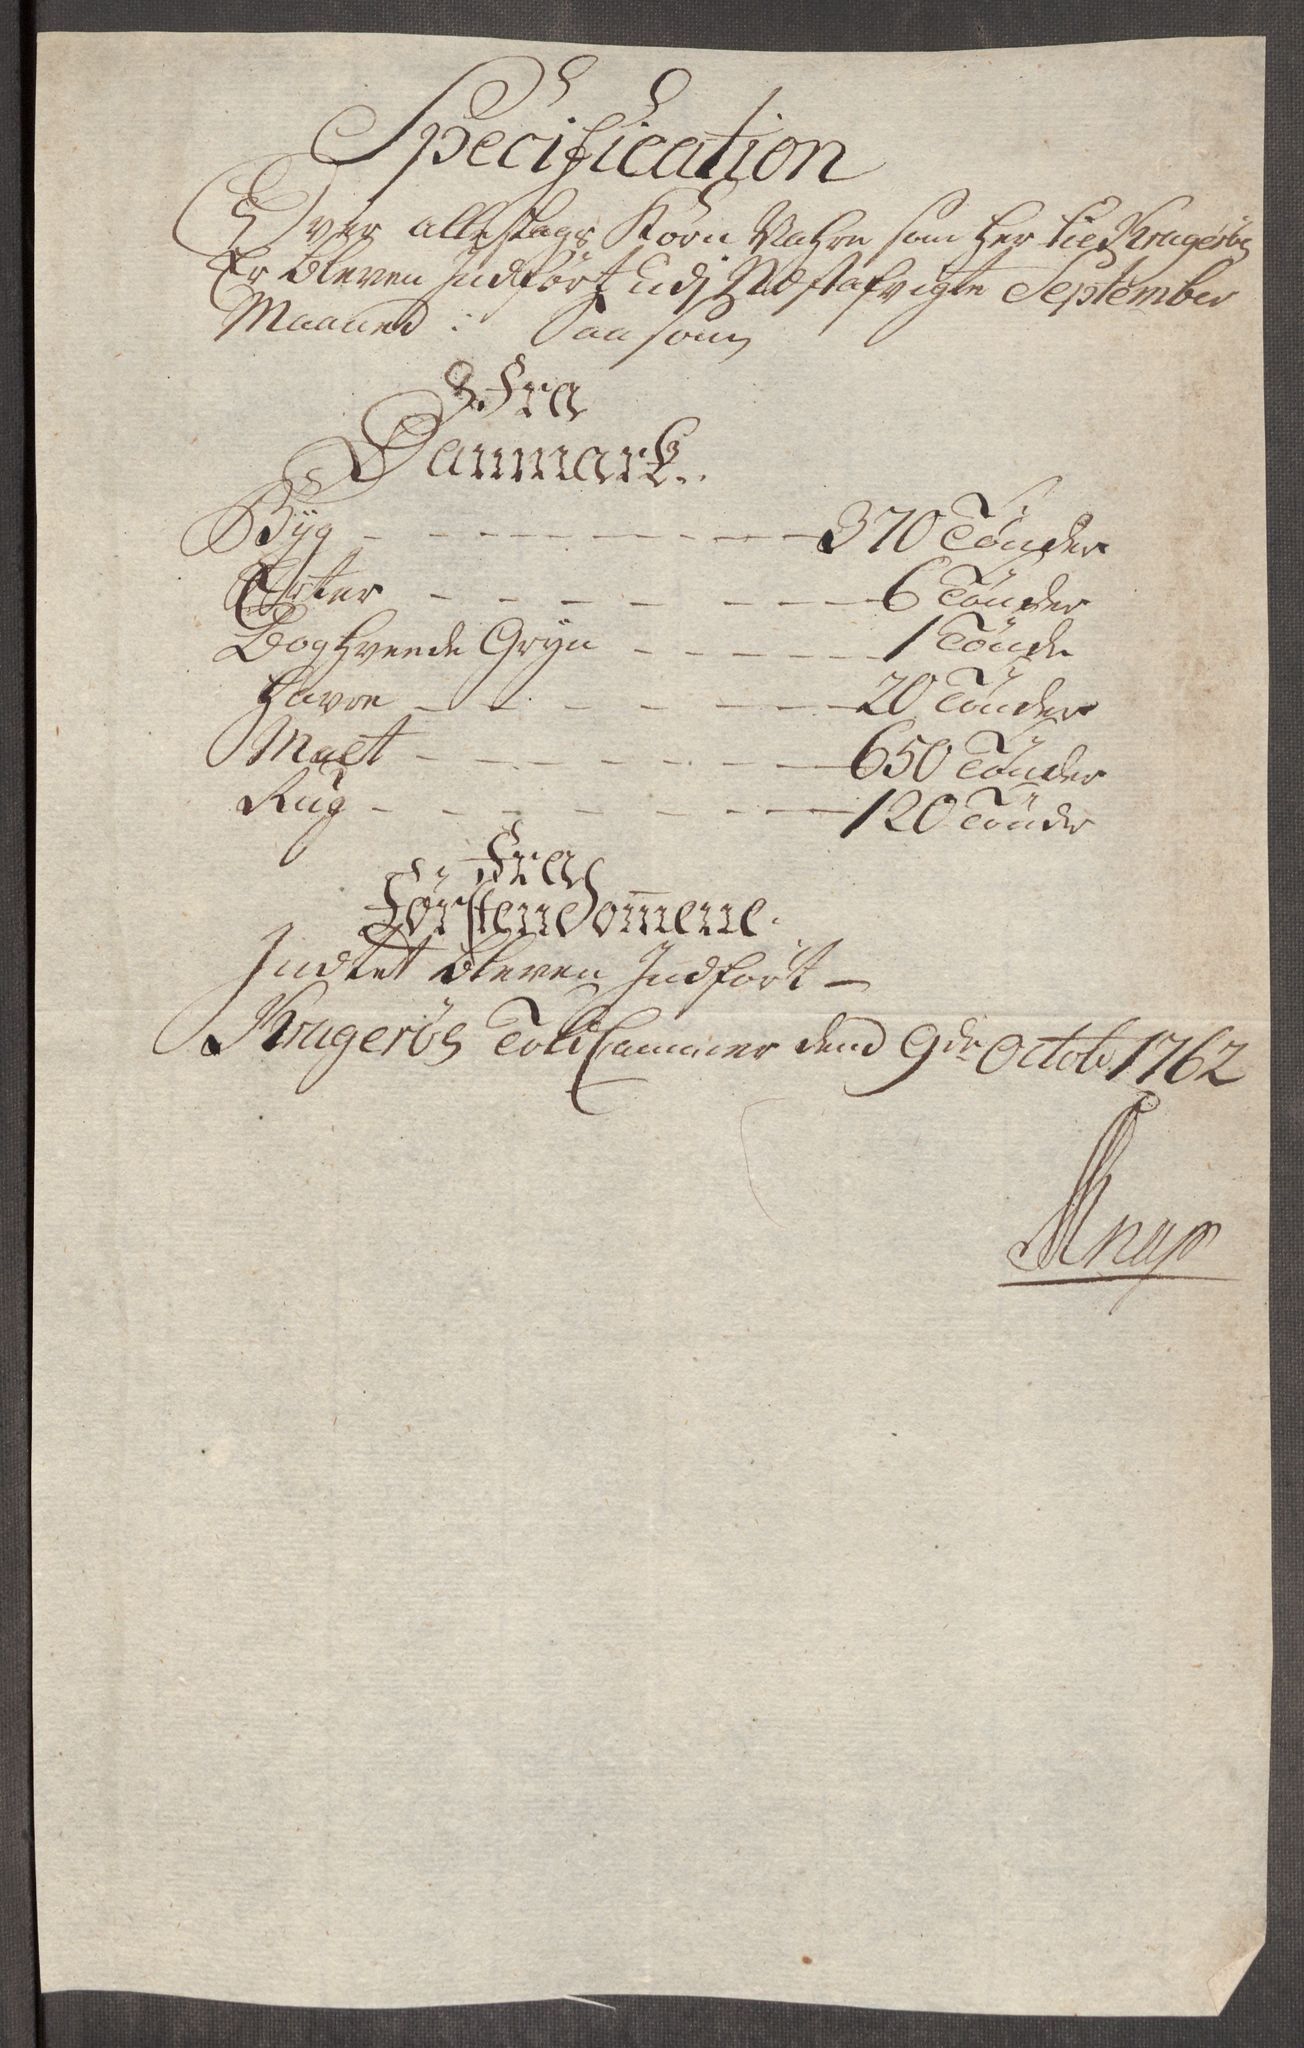 Specification
Over alle slags Korn Vahre som her til Kragerøe
Er bleven Indført udj Næst afvigte September
Maaned : Saasom
Fra
Danmark.
Byg - - - - - - - 370 Tønder
Erter - - - - - - - 6 Tønder
Boghveede Gryn - - - - 1 Tønde
Havre - - - - - - - 20 Tønder
Malt - - - - - - - 650 Tønder
Rug - - - - - - - 120 Tønder
Fra
Førstendommene.
Indtet bleven Indført -
Kragerøes Told Cammer dend 9de Octob: 1762
Knap